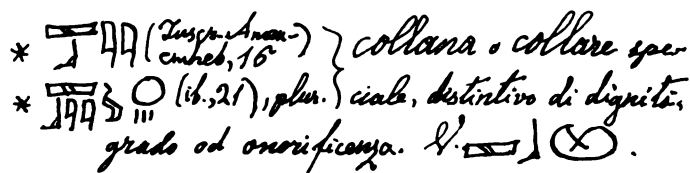 * (Inscr. Amon-
emheb, 16) collana o collare spe-
* (ib., 21), plur. ciale, distintivo di dignità,
grado od onorificenza. V.